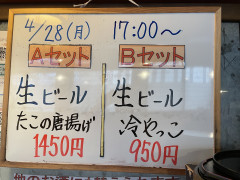 4/28(月) 17:00〜
Aセット
生ビール
たこの唐揚げ
1450円
Bセット
生ビール
冷やっこ
950円